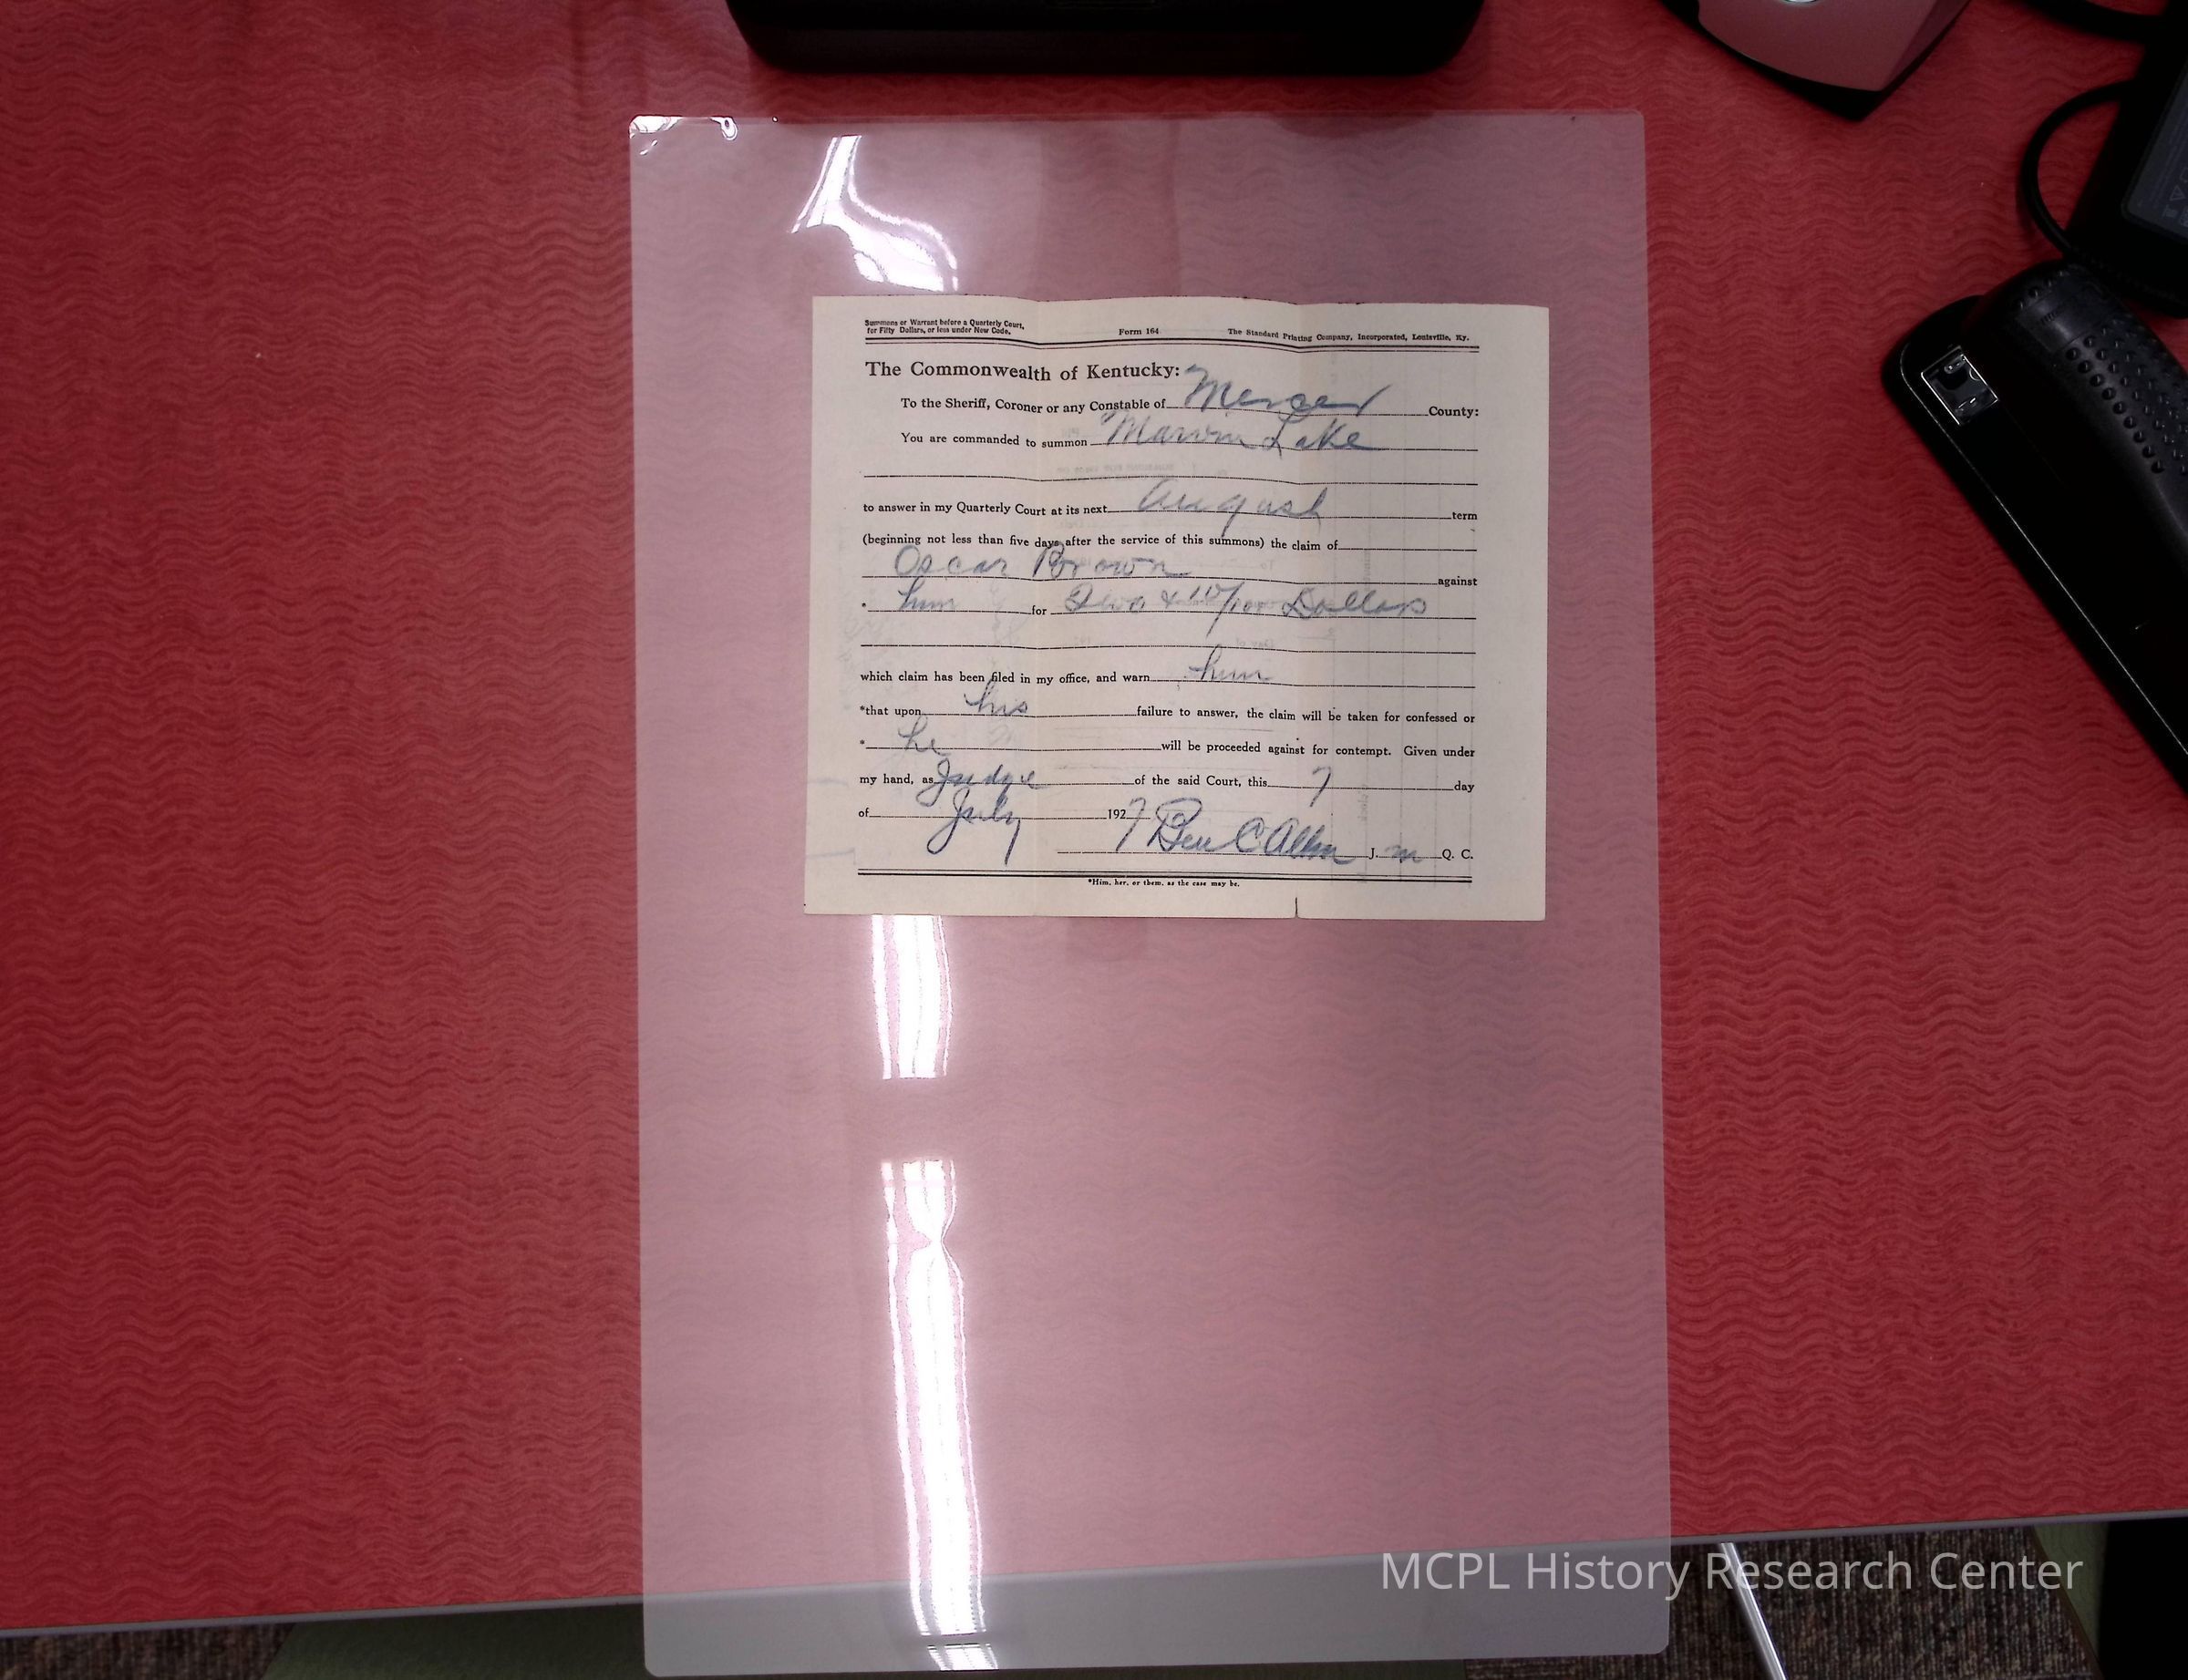 Summons or Warrant before a Quarterly Court,
for Fifty Dollars, or less under New Code.
Form 164
The Standard Printing Company, Incorporated, Louisville, Ky.
The Commonwealth of Kentucky:
To the Sheriff, Coroner or any Constable of Mercer County:
You are commanded to summon Marvin Lake
to answer in my Quarterly Court at its next August term
(beginning not less than five days after the service of this summons) the claim of
Oscar Brown against
* him for Two & 10/100 Dollars
which claim has been filed in my office, and warn him
*that upon his failure to answer, the claim will be taken for confessed or
* he will be proceeded against for contempt. Given under
my hand, as Judge of the said Court, this 7 day
of July 1927 Ben C Allin J. m Q. C.
*Him, her, or them, as the case may be.
MCPL History Research Center